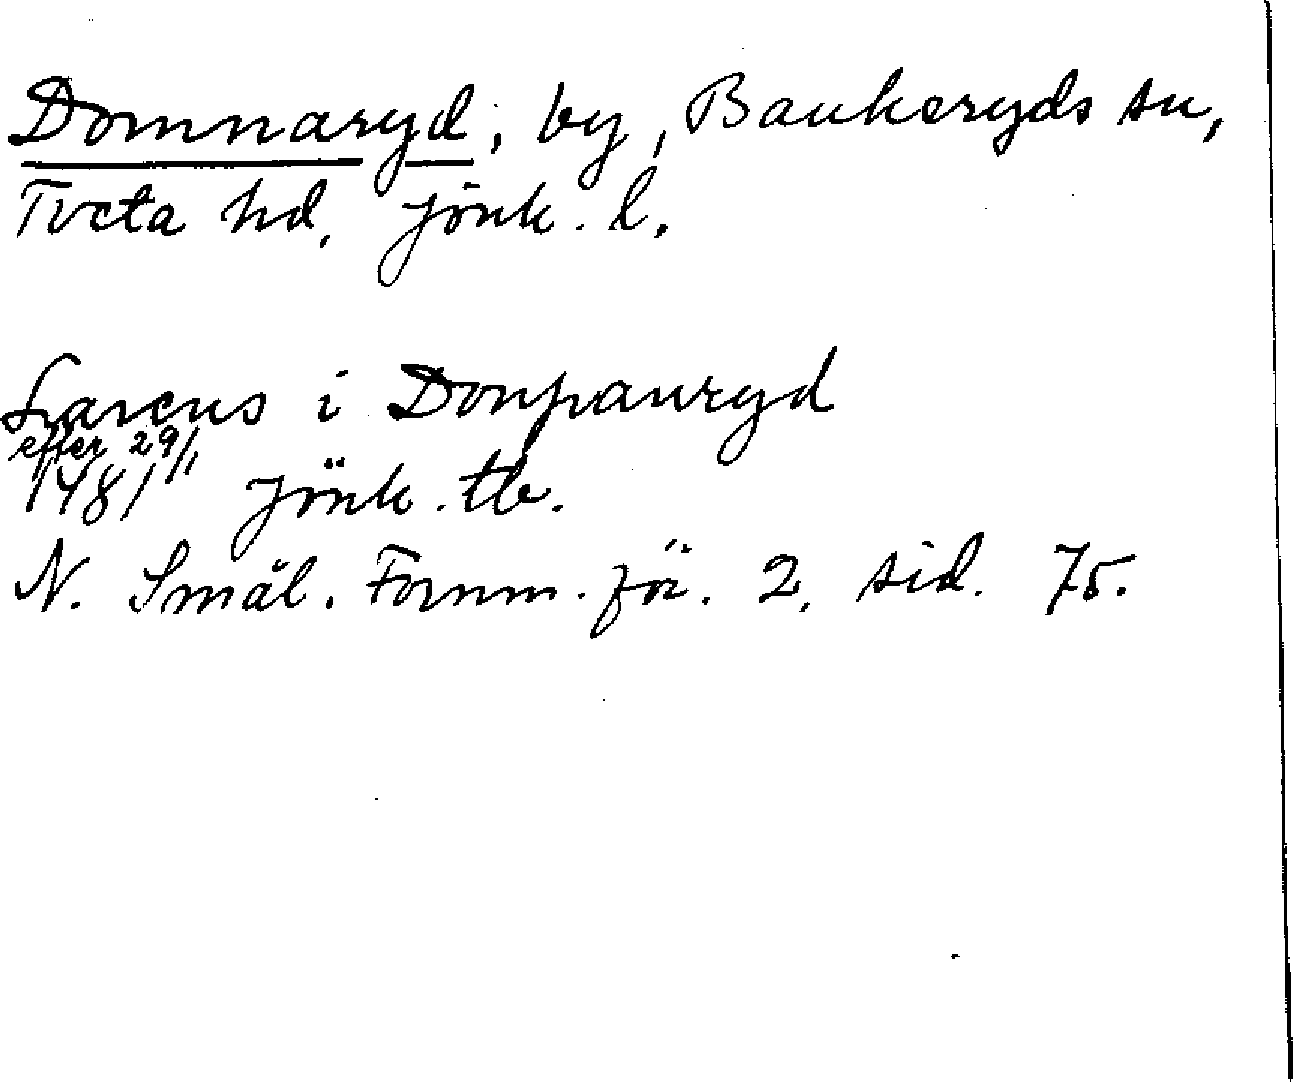 Domnaryd, by, Bankeryds sn,
Tveta hd, Jönk. l.
Larcus i Donpanryd
efter 29/1
1481 Jönk. tb.
N. Smål. Fornm. för. 2, sid. 75.